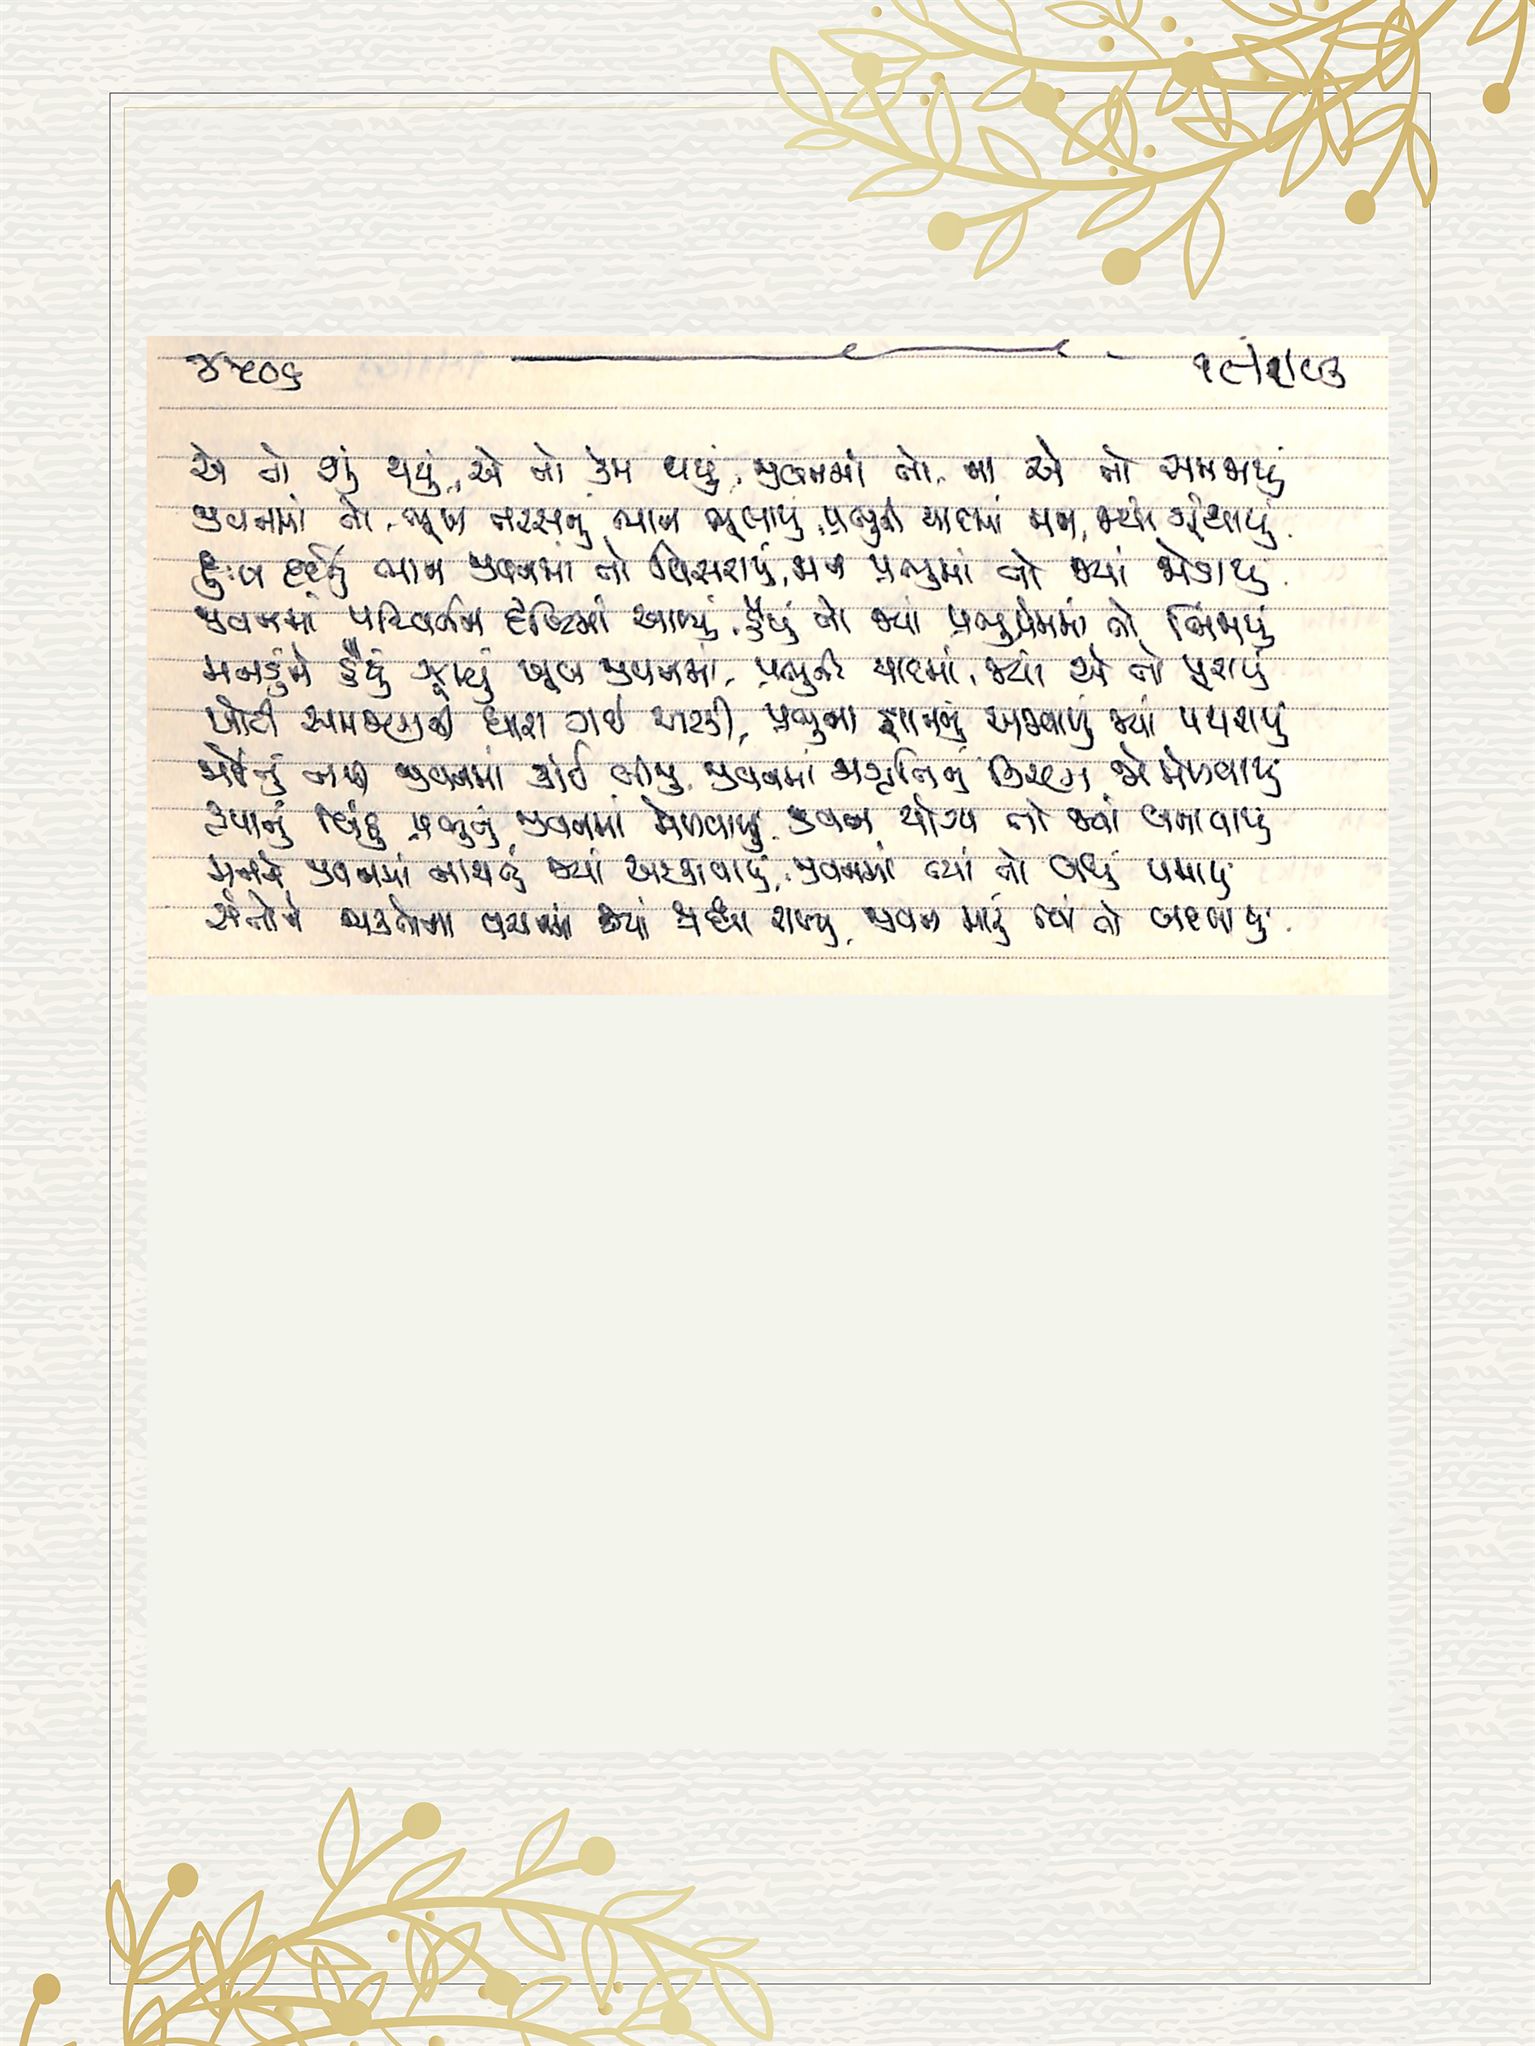 ૪૫૦૬ ૧૯/૧/૯૩
એ તો શું થયું, એ તો કેમ થયું, જીવનમાં તો, ના એ તો સમજાયું
જીવનમાં તો, ભૂખ તરસનું ભાન ભૂલાયું, પ્રભુની યાદમાં મન, જ્યાં ગૂંથાયું.
દુઃખ દર્દનું ભાન જીવનમાં તો વિસરાયું, મન પ્રભુમાં તો જ્યાં જોડાયું.
જીવનમાં પરિવર્તન દૃષ્ટિમાં આવ્યું, હૈયું તો જ્યાં પ્રભુપ્રેમમાં તો ભિંજાયું
મનડુંને હૈયું ઝૂમ્યું ખૂબ જીવનમાં, પ્રભુની યાદમાં, જ્યાં એ તો પૂરાયું
ખોટી સમજણની ધારા ગઈ અટકી, પ્રભુના જ્ઞાનનું અજવાળું જ્યાં પથરાયું
નથી જીવનમાં કાંઈ બીજું, જીવનમાં જાગૃતિનું કિરણ જો મેળવાયું
કૃપાનું બિંદુ પ્રભુનું જીવનમાં મેળવાયું, જીવન યોગ્ય તો જ્યાં બનાવાયું
મનને જીવનમાં નાચતું જ્યાં અટકાવાયું, જીવનમાં ત્યાં તો બધું પમાયું
સંતોને ભક્તોના વચનમાં જ્યાં શ્રધ્ધા રાખ્યું, જીવન મારું ત્યાં તો બદલાયું.